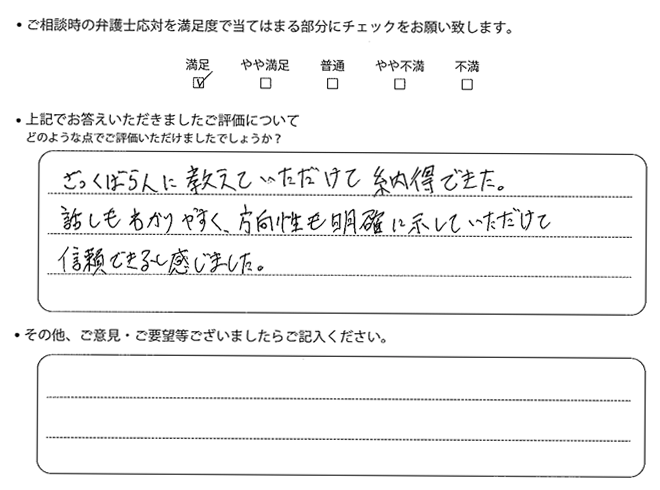 ・ご相談時の弁護士応対を満足度で当てはまる部分にチェックをお願い致します。
満足 やや満足 普通 やや不満 不満
☑ □ □ □ □
・上記でお答えいただきましたご評価について
どのような点でご評価いただけましたでしょうか？
ざっくばらんに教えていただけて納得できた。
話しもわかりやすく、方向性も明確に示していただけて
信頼できると感じました。
・その他、ご意見・ご要望等ございましたらご記入ください。